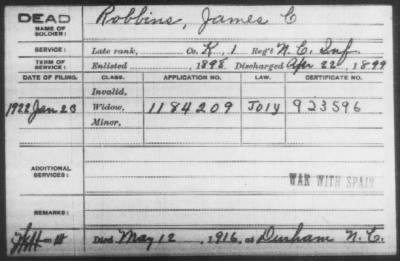 DEAD
NAME OF SOLDIER: Robbins, James C
SERVICE: Late rank, Co. K, 1 Reg't N.C. Inf
TERM OF SERVICE: Enlisted , 1898 Discharged Apr 22, 1899
DATE OF FILING. CLASS. APPLICATION NO. LAW. CERTIFICATE NO.
Invalid,
1922 Jan 23 Widow, 1184209 923596
Minor,
ADDITIONAL SERVICES:
WAR WITH SPAIN
REMARKS:
Died May 12, 1916, at Durham N.C.